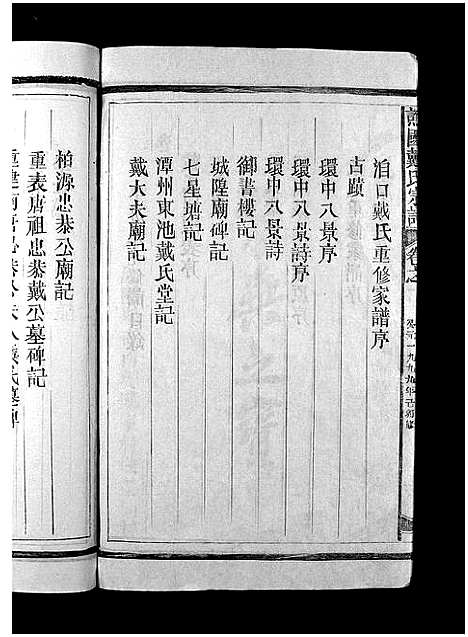 譙國戴氏宗譜 卷之一
公元一九九九年己卯新修
㳙口戴氏重修家譜序
古蹟
環中八景序
環中八景詩序
環中八景詩
御書樓記
城隍廟碑記
七星塘記
潭州東池戴氏堂記
戴大夫廟記
柏源忠恭公廟記
重表唐祖忠恭戴公墓碑記